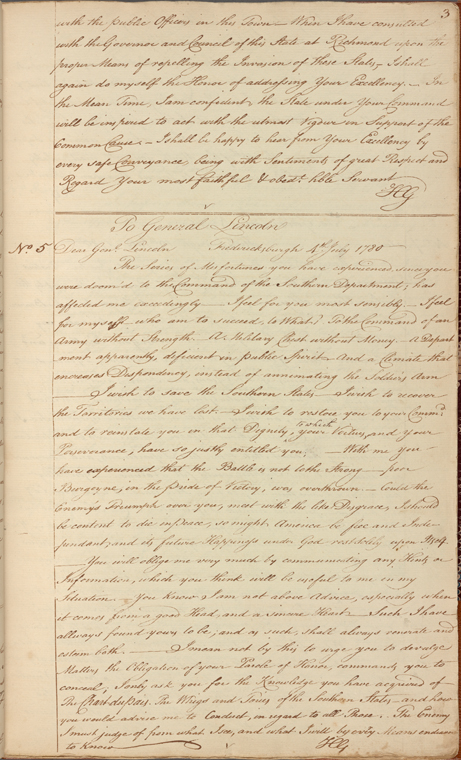 3
with the public Officers in this Town — When I have consulted
with the Governor and Council of this State at Richmond upon the
proper Means of repelling the Invasion of these States, I shall
again do myself the Honor of addressing Your Excellency. — In
the Mean Time, I am confident, the State under Your Command
will be inspired to act with the utmost Vigour in Support of the
Common Cause. — I shall be happy to hear from Your Excellency by
every safe Conveyance, being with Sentiments of great Respect and
Regard Your most faithful & obedt. hble Servant
HG
To General Lincoln
No. 5 Dear Genl. Lincoln Fredericksburgh 4th July 1780
The Series of Misfortunes you have experienced, since you
were doom'd to the Command of the Southern Department, has
affected me exceedingly — I feel for you most sensibly — I feel
for myself who am to succeed, to What? To the Command of an
Army without Strength — A Military Chest without Money. — A Depart
ment apparently deficient in public Spirit, And a Climate that
encreases Despondency, instead of annimating the Soldiers Arm
I wish to save the Southern States — I wish to recover
the Territories we have lost — I wish to restore you to your Commd.
and to reinstate you in that Dignity, to which your Virtues, and your
Perseverance, have so justly entitled you. — With me you
have experienced that the Battle is not to the Strong — poor
Burgoyne, in the Pride of Victory, was overthrown — Could the
Enemy's Triumph over you, meet with the like Disgrace, I should
be content to die in peace, so might America be free and Inde-
pendant, and its future Happiness under God rest solely upon Itself.
You will oblige me very much by communicating any Hints or
Information, which you think will be useful to me in my
Situation — You know I am not above Advice, especially when
it comes from a good Head, and a sincere Heart — Such I have
allways found yours to be, and as such, shall always venerate and
esteem both. — I mean not by this to urge you to devulge
Matters the Obligation of your Parole of Honor, commands you to
conceal, I only ask you for the Knowledge you have acquired of
The Chart du Pais. The Whigs and Tories of the Southern States, and how
you would advise me to Conduct, in regard to all These. The Enemy
I must judge of from what I see, and what I will by every Means endeavor
to know
HG